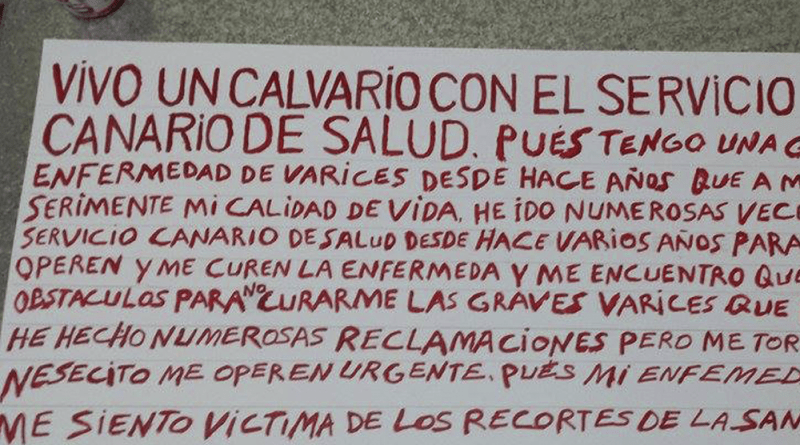 VIVO UN CALVARIO CON EL SERVICIO
CANARIO DE SALUD. PUÉS TENGO UNA
ENFERMEDAD DE VARICES DESDE HACE AÑOS QUE A M
SERIMENTE MI CALIDAD DE VIDA. HE IDO NUMEROSAS VEC
SERVICIO CANARIO DE SALUD DESDE HACE VARIOS AÑOS PARA
OPEREN Y ME CUREN LA ENFERMEDA Y ME ENCUENTRO QUE
OBSTACULOS PARA NO CURARME LAS GRAVES VARICES QUE
HE HECHO NUMEROSAS RECLAMACIONES PERO ME TOR
NESECITO ME OPEREN URGENTE. PUÉS MI ENFEMED
ME SIENTO VICTIMA DE LOS RECORTES DE LA SAN